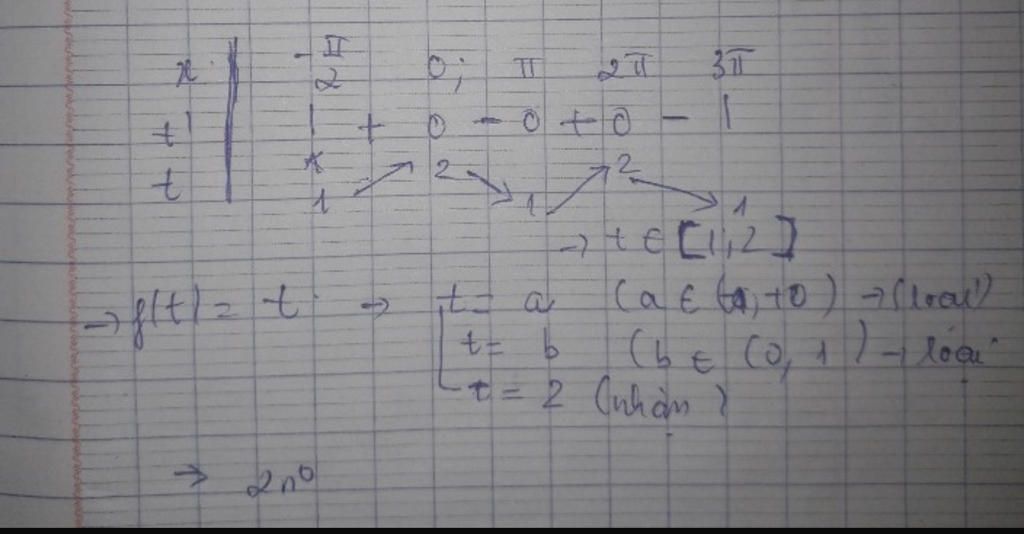 x -π/2 0; π 2π 3π
t' | + 0 - 0 + 0 - |
t 1 ↗ 2 ↘ 1 ↗ 2 ↘ 1
→ t ∈ [1,2]
→ f(t) = t → t = a (a ∈ ( , +0) → (loại)
t = b (b ∈ (0, 1) → loại
t = 2 (nhận)
→ 2n⁰